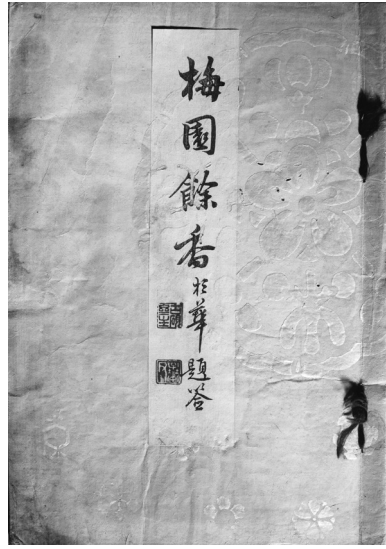 梅園餘香
於華題簽